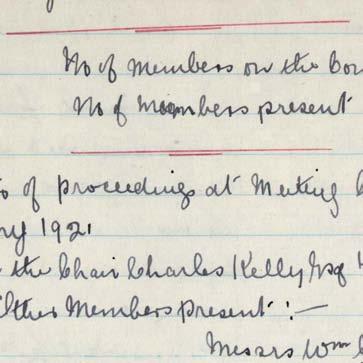 No of members on the
No of members present
of proceedings at Meeting
1921
the Chair Charles Kelly Esq
Other Members present :—
Messrs Wm